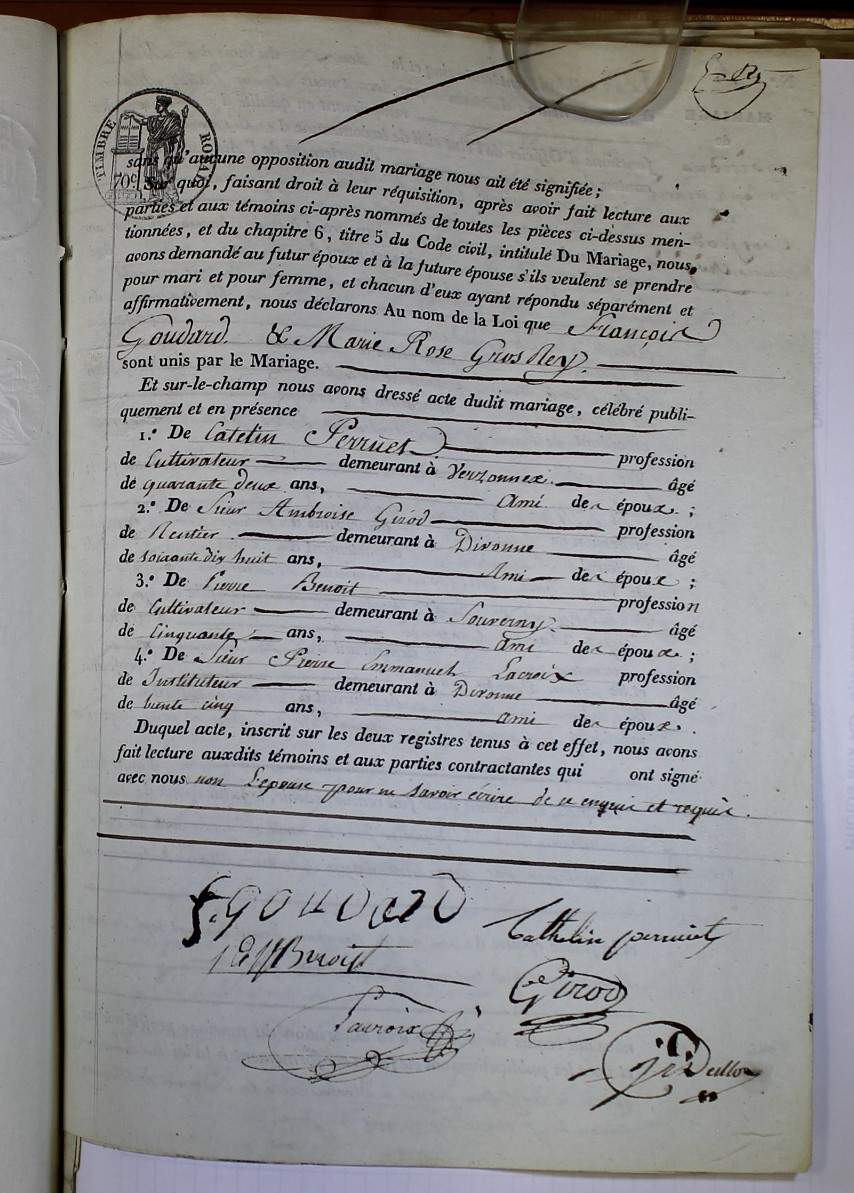 TIMBRE ROYAL
70c
sans qu'aucune opposition audit mariage nous ait été signifiée ;
Sur quoi, faisant droit à leur réquisition, après avoir fait lecture aux
parties et aux témoins ci-après nommés de toutes les pièces ci-dessus men-
tionnées, et du chapitre 6, titre 5 du Code civil, intitulé Du Mariage, nous
avons demandé au futur époux et à la future épouse s'ils veulent se prendre
pour mari et pour femme, et chacun d'eux ayant répondu séparément et
affirmativement, nous déclarons Au nom de la Loi que François
Goudard. & Marie Rose GrosRey.
sont unis par le Mariage.
Et sur-le-champ nous avons dressé acte dudit mariage, célébré publi-
quement et en présence
1.° De Catelin Perruet profession
de Cultivateur demeurant à Verzonnex. âgé
de quarante deux ans, Ami des époux ;
2.° De Sieur Ambroise Girod profession
de Rentier demeurant à Divonne âgé
de soixante dix huit ans, Ami des époux ;
3.° De Pierre Benoit profession
de Cultivateur demeurant à Sauverny. âgé
de Cinquante ans, ami des époux ;
4.° De Sieur Pierre Emmanuel Lacroix profession
de Instituteur demeurant à Divonne âgé
de trente cinq ans, ami des époux .
Duquel acte, inscrit sur les deux registres tenus à cet effet, nous avons
fait lecture auxdits témoins et aux parties contractantes qui ont signé
avec nous non L'epouse pour ne savoir écrire de ce enquis et requise.
f. GOUDARD
Cathelin perruet
Benoit
Girod
Lacroix